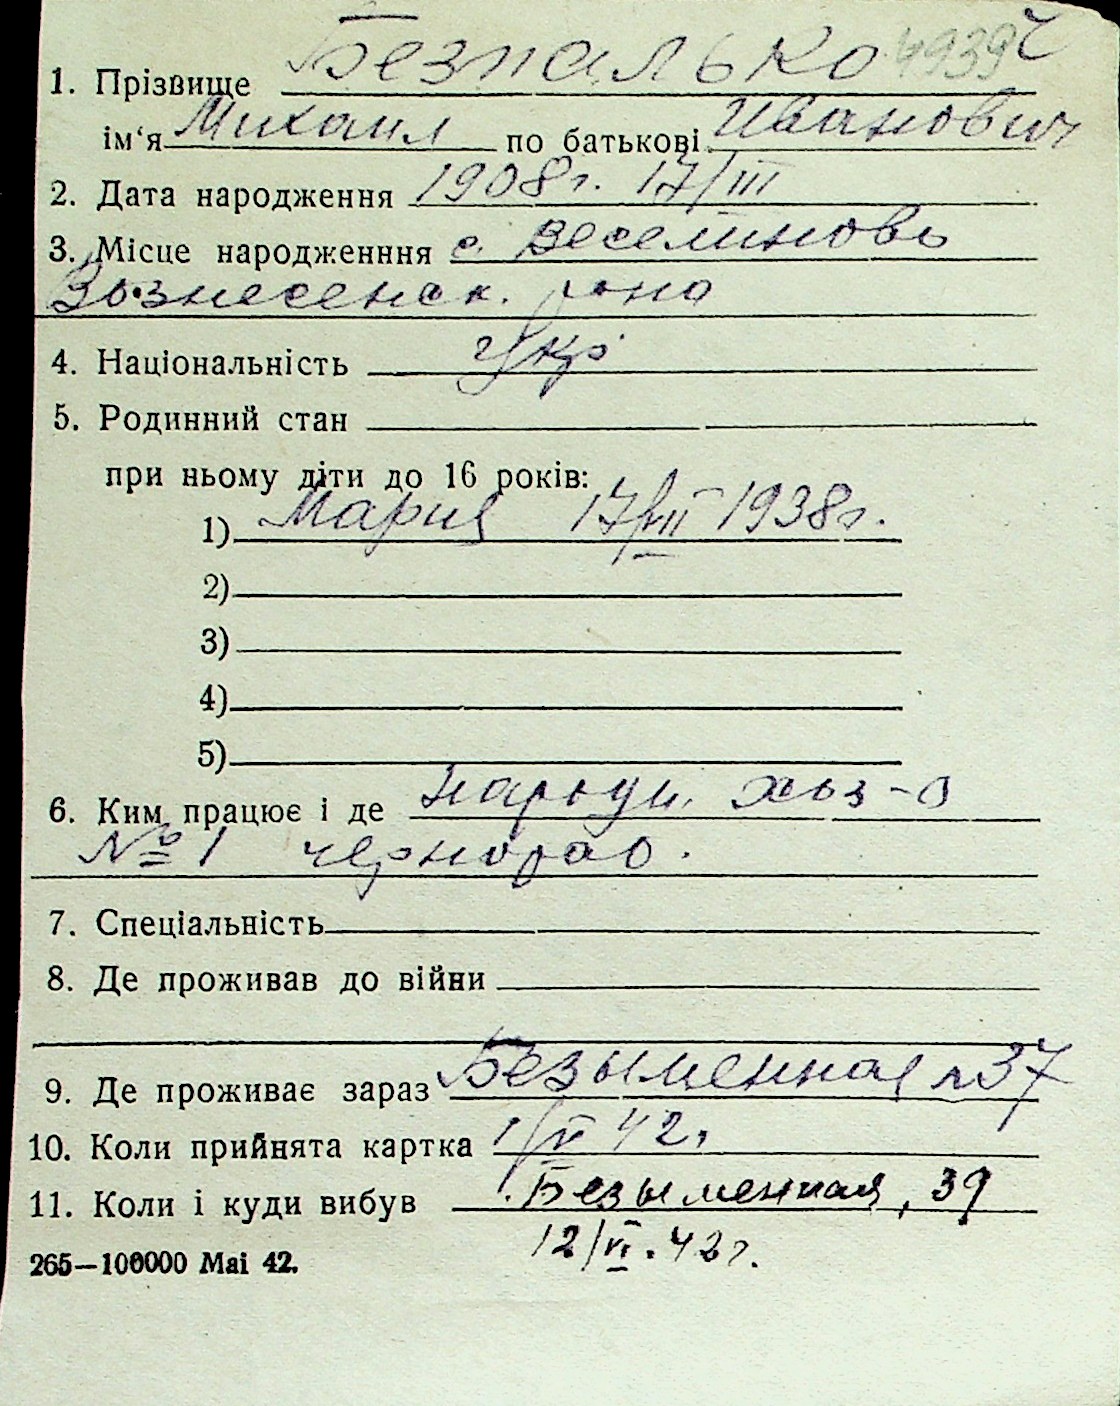 1. Прізвище Безпалько 4939 ч
ім'я Михаил по батькові Иванович
2. Дата народження 1908 г. 17/III
3. Місце народженння с. Веселиново
Вознесенск. рона
4. Національність Укр
5. Родинний стан
при ньому діти до 16 років:
1) Мария 17/VII 1938 г.
2)
3)
4)
5)
6. Ким працює і де хоз-о
№ 1 чернораб.
7. Спеціальність
8. Де проживав до війни
9. Де проживає зараз Безыменная 37
10. Коли прийнята картка 1/VI 42 г
11. Коли і куди вибув Безыменная, 39
12/VI. 42 г.
265—100000 Mai 42.